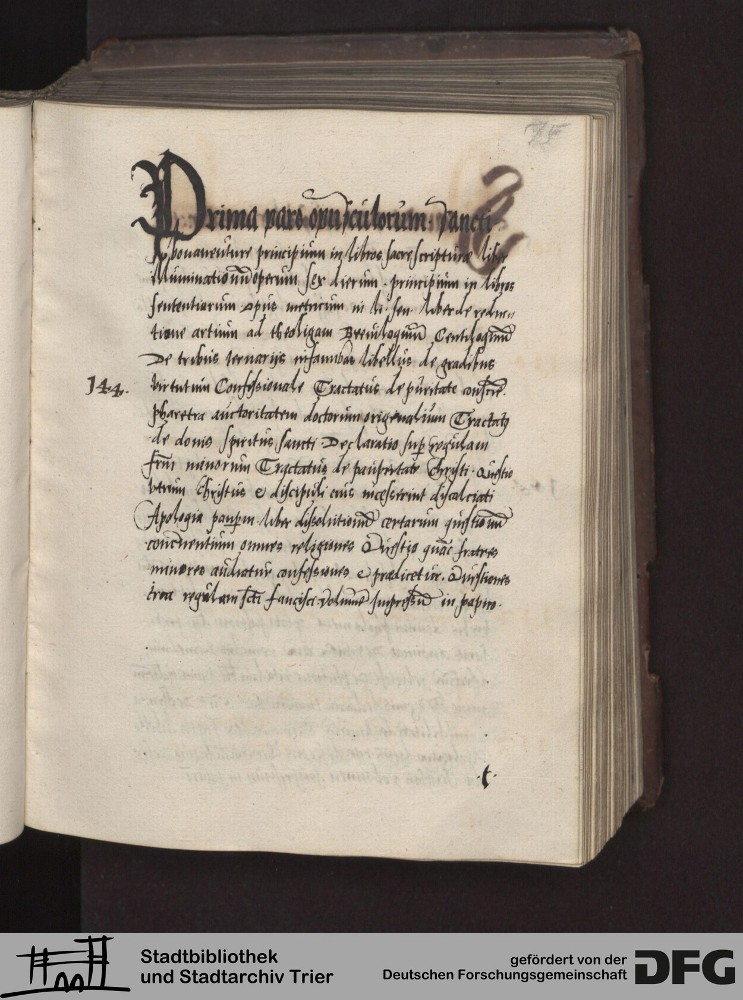 Prima pars opusculorum sancti
bonaventure principium in libros sacre scripturae liber
illuminationum operum sex dierum. principium in libros
sententiarum opus metricum in li. sen. liber de reduc
tione artium ad theoligam Breviloquium Centiloquium
De tribus ternarijs infamibus libellus de gradibus
144. virtutum Confessionale Tractatus de puritate conscie.
Pharetra auctoritatem doctorum origenalium Tractatus
de donis spiritus sancti Declaratio sup regulam
frm minorum Tractatus de paupertate Christi. Questio
utrum Christus & discipuli eius incesserint discalciati
Apologia pauperum liber dissolutionum certarum questionum
concnentium omnes religiones Questio quare fratres
minores audiatur confessiones & praedicetur. Questiones
circa regulam scti fancisci volumen impressum in papiro.
.t.
Stadtbibliothek
und Stadtarchiv Trier
gefördert von der
Deutschen Forschungsgemeinschaft
DFG